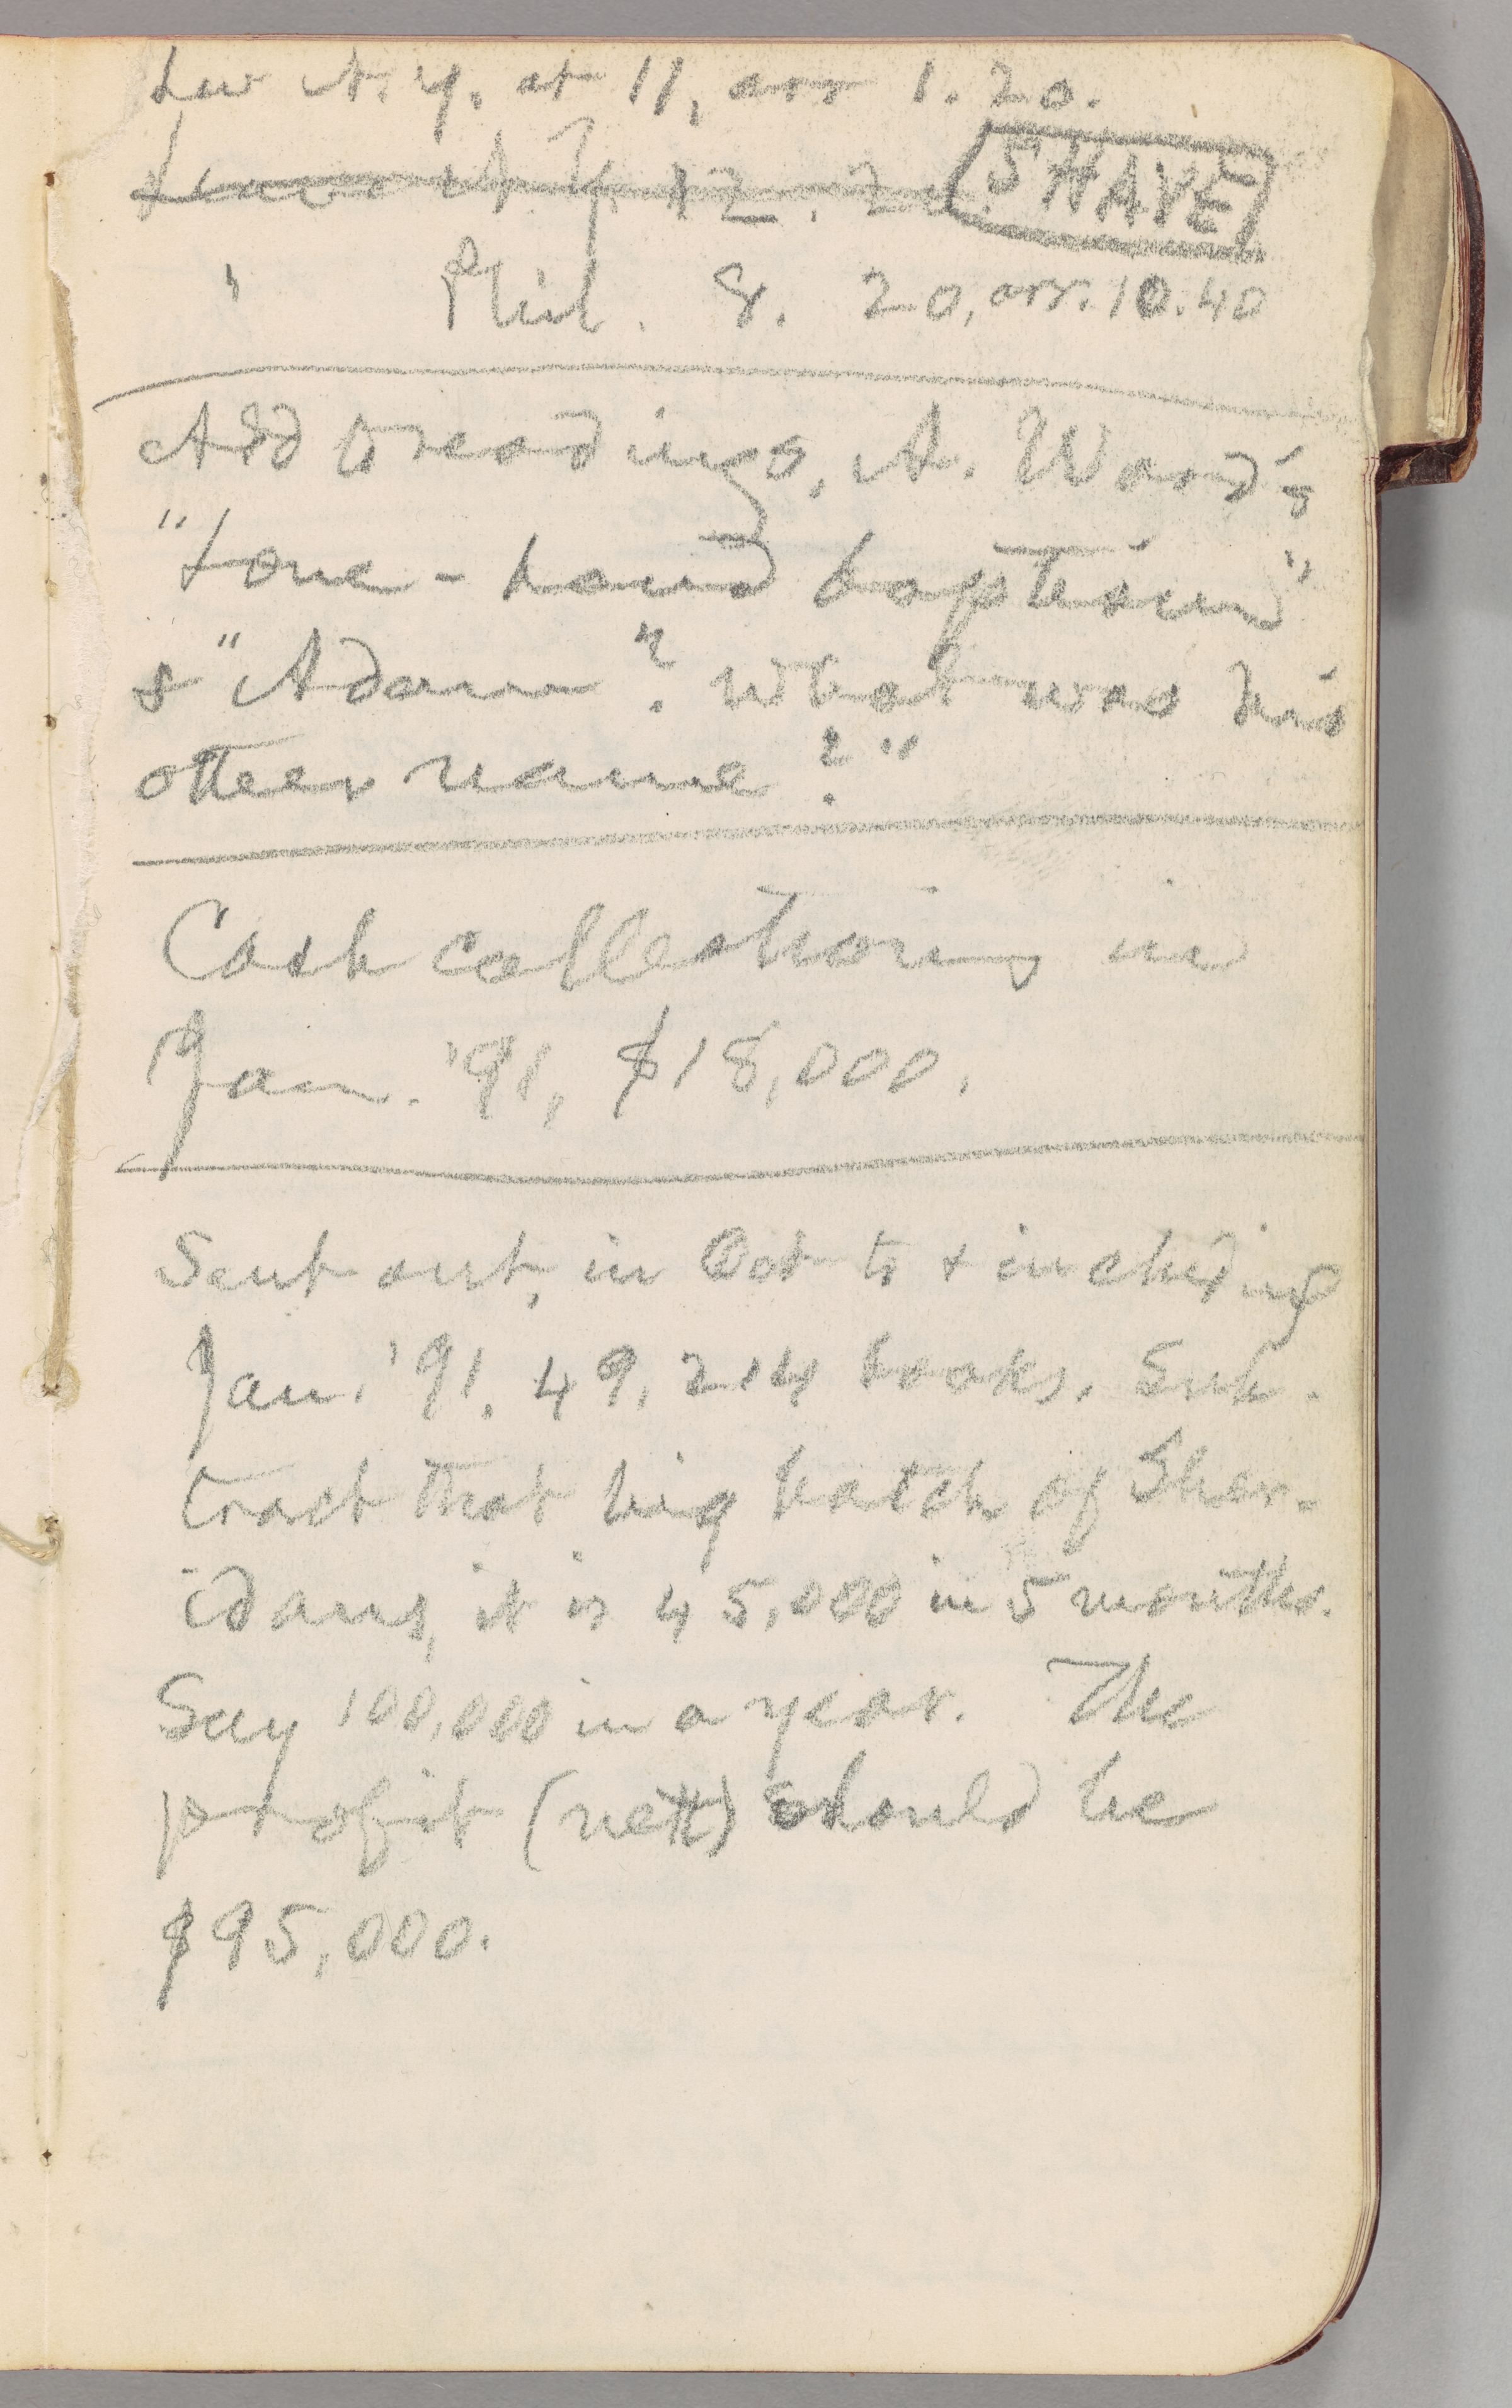 Lv N.Y. at 11, arr 1.20.
Leave N.Y. 12.20 SHAVE
" Phil. 8.20, arr. 10.40
Add to readings, A. Ward's
"Lone-hand baptism"
& "Adam"? What was his
other name?"
Cash collections in
Jan. '91, $18,000.
Sent out, in Oct to & including
Jan. '91, 49,214 books. Sub-
tract that big batch of Sher-
idans, it is 45,000 in 5 months.
Say 100,000 in a year. The
profit (nett) should be
$95,000.